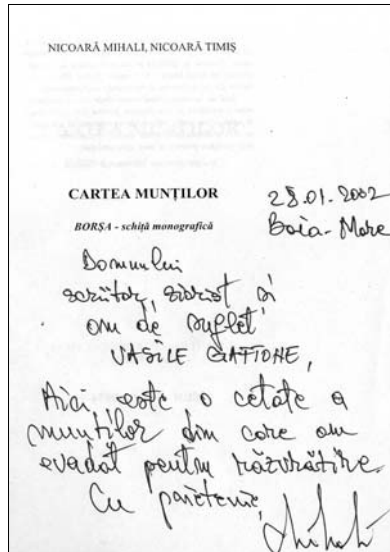 NICOARĂ MIHALI, NICOARĂ TIMIȘ
CARTEA MUNȚILOR
28.01.2002
BORȘA - schiță monografică
Baia-Mare
Domnului
scriitor, ziarist și
om de suflet
VASILE GAFTONE,
Aici este o cetate a
munților din care am
evadat pentru răzvrătire.
Cu prietenie,
Mihali